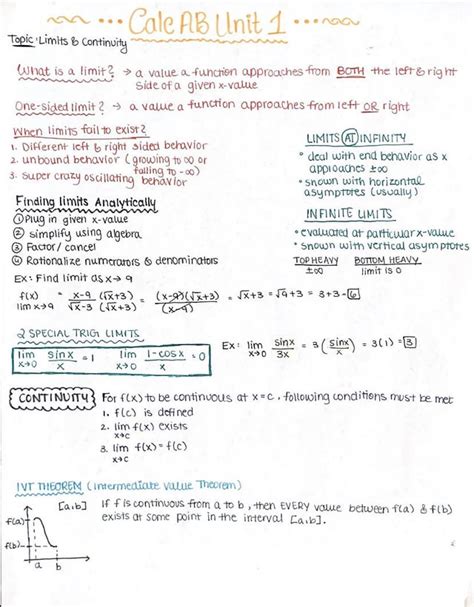 Calc AB Unit 1
Topic: Limits & Continuity
What is a limit? → a value a function approaches from BOTH the left & right
side of a given x-value
One-sided limit? → a value a function approaches from left OR right
When limits fail to exist?
1. Different left & right sided behavior
2. unbound behavior (growing to ∞ or
falling to -∞)
3. super crazy oscillating behavior
LIMITS AT INFINITY
* deal with end behavior as x
approaches ±∞
* shown with horizontal
asymptotes (usually)
Finding limits Analytically
① Plug in given x-value
② simplify using algebra
③ Factor/cancel
④ Rationalize numerators & denominators
INFINITE LIMITS
* evaluated at particular x-value
* shown with vertical asymptotes
TOP HEAVY BOTTOM HEAVY
±∞ limit is 0
Ex: Find limit as x→9
f(x) = x-9/√x-3 (√x+3)/(√x+3) = (x-9)(√x+3)/(x-9) = √x+3 = √9+3 = 3+3 = 6
lim x→9
2 SPECIAL TRIG LIMITS
lim x→0 sinx/x = 1 lim x→0 1-cosx/x = 0
Ex: lim x→0 sinx/3x = 3(sinx/x) = 3(1) = 3
CONTINUITY For f(x) to be continuous at x=c, following conditions must be met
1. f(c) is defined
2. lim f(x) exists
x→c
3. lim f(x) = f(c)
x→c
IVT THEOREM (Intermediate Value Theorem)
[a,b] If f is continuous from a to b, then EVERY value between f(a) & f(b)
exists at some point in the interval [a,b].
f(a)
f(b)
a b